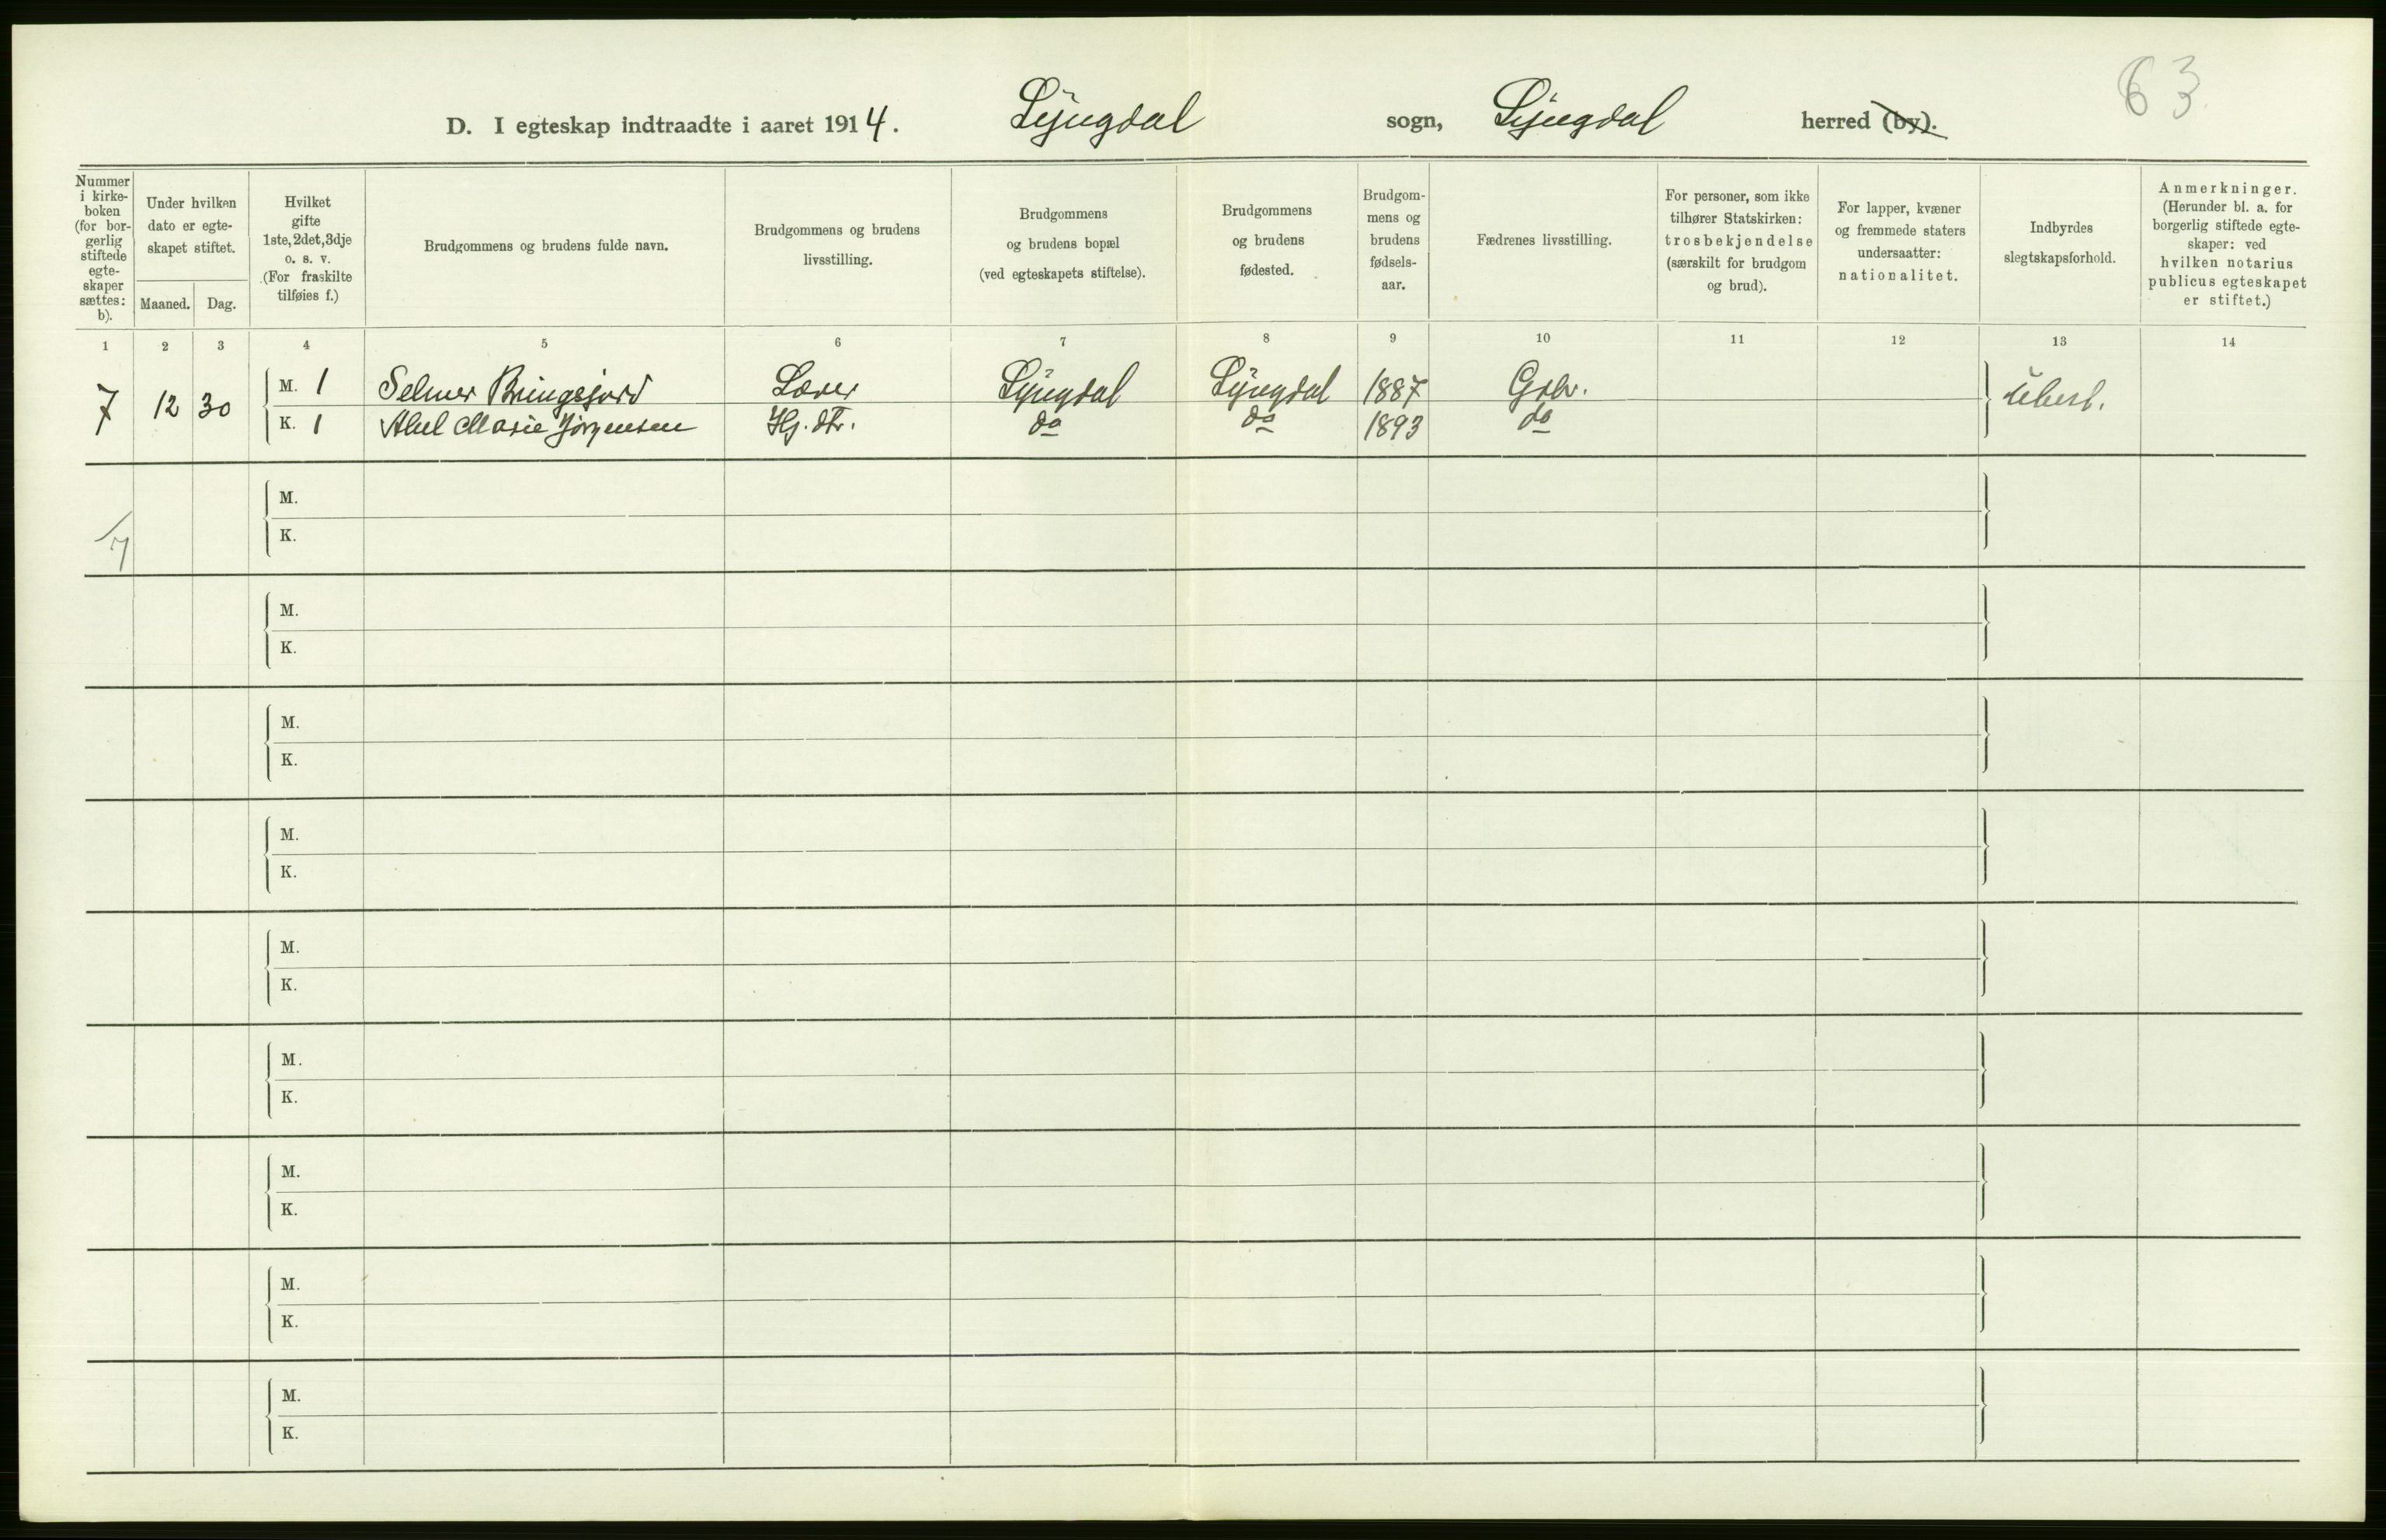 63
D. I egteskap indtraadte i aaret 1914. Lyngdal sogn, Lyngdal herred (by).
Nummer i kirke-boken (for bor-gerlig stiftede egte-skaper sættes: b).
Under hvilken dato er egte-skapet stiftet.
Maaned. Dag.
Hvilket gifte 1ste, 2det, 3dje o. s. v. (For fraskilte tilføies f.)
Brudgommens og brudens fulde navn.
Brudgommens og brudens livsstilling.
Brudgommens og brudens bopæl (ved egteskapets stiftelse).
Brudgommens og brudens fødested.
Brudgom-mens og brudens fødsels-aar.
Fædrenes livsstilling.
For personer, som ikke tilhører Statskirken: trosbekjendelse (særskilt for brudgom og brud).
For lapper, kvæner og fremmede staters undersaatter: nationalitet.
Indbyrdes slegtskapsforhold.
Anmerkninger. (Herunder bl. a. for borgerlig stiftede egte-skaper: ved hvilken notarius publicus egteskapet er stiftet.)
1 2 3 4 5 6 7 8 9 10 11 12 13 14
7 12 30 M. 1 Selmer Bringsjord Lærer Lyngdal Lyngdal 1887 Gbr. Ubesl.
K. 1 Abel Marie Jörgensen Hj. dtr. do do 1893 do
M.
7
K.
M.
K.
M.
K.
M.
K.
M.
K.
M.
K.
M.
K.
M.
K.
M.
K.